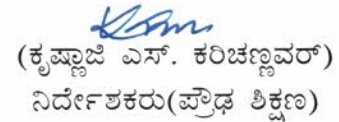 (ಕೃಷ್ಣಾಜಿ ಎಸ್. ಕರಿಚಣ್ಣವರ್)
ನಿರ್ದೇಶಕರು(ಪ್ರೌಢ ಶಿಕ್ಷಣ)